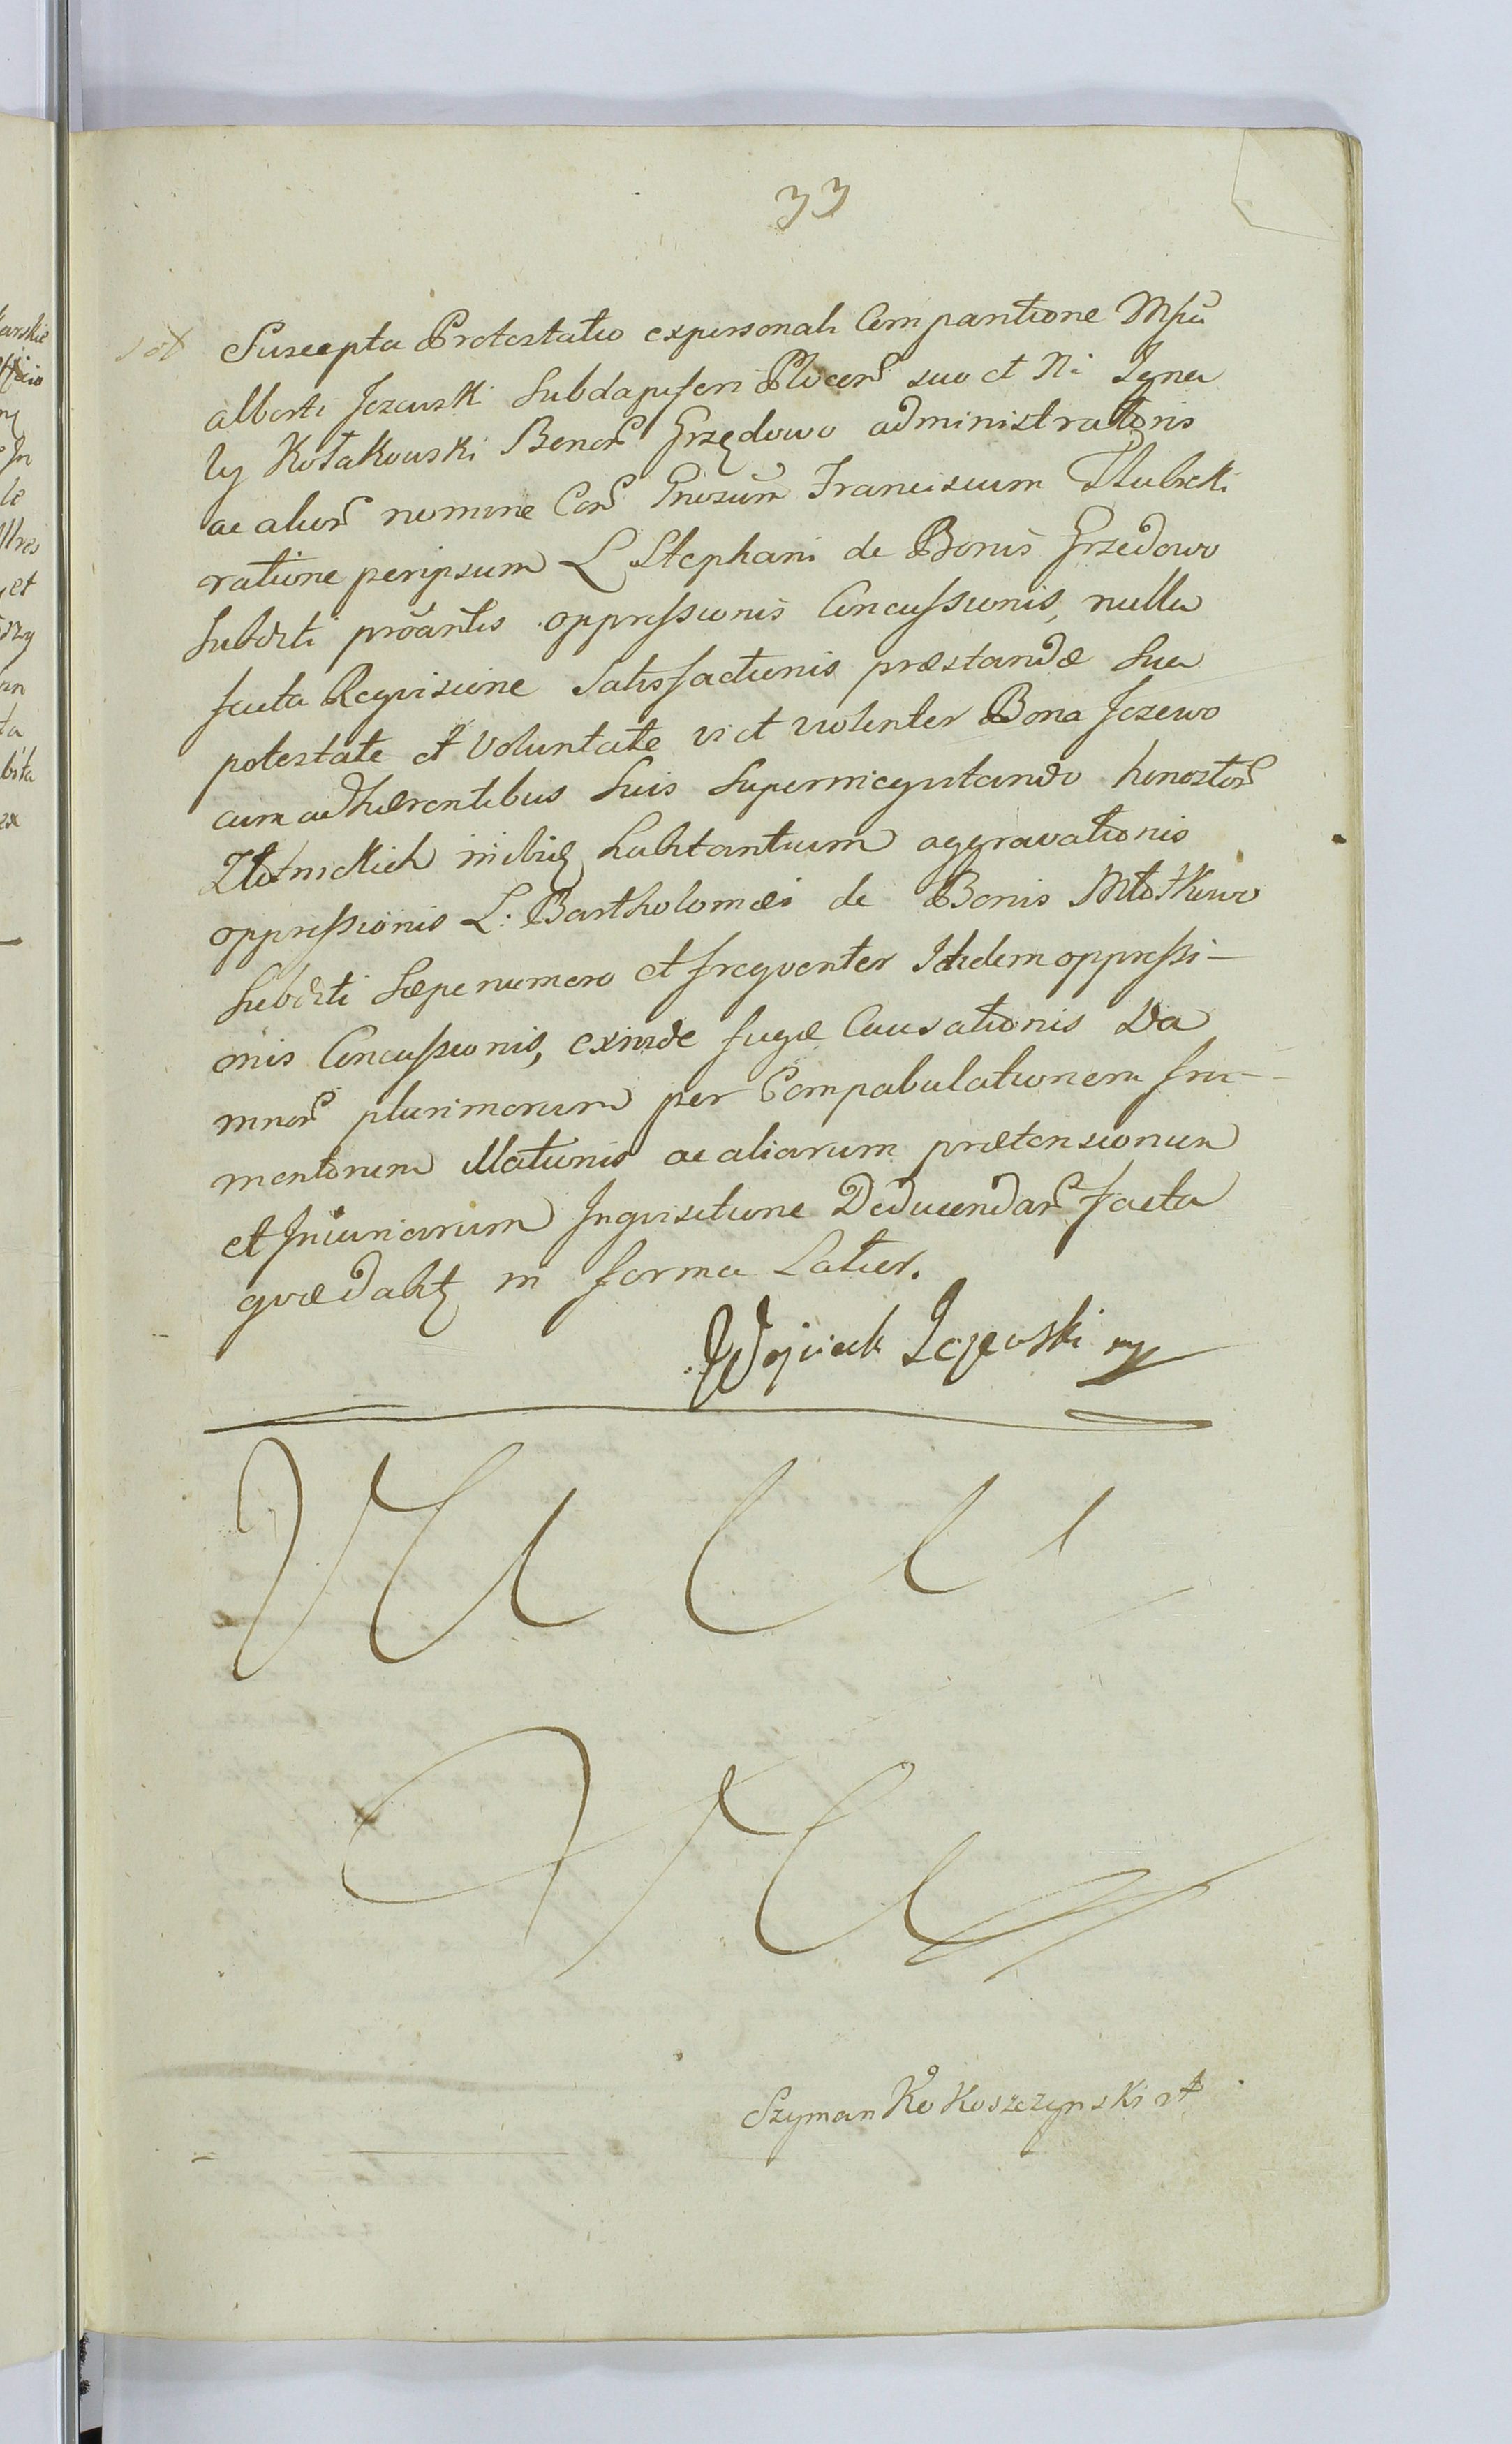 33
sot Suscepta Protestatio expersonali Comparitione Mfci
alberti Jezewski Subdapiferi Plocens suo et N: Igna
ty Kołakowski Bonor Grzędowo administratoris
ac alior nomine Con Gnosum Franciscum Dłubicki
ratione peripsum L Stephani de Bonis Grzedowo
Subditi proantis oppressionis Concussionis, nulla
facta Reqvisione Satisfactionis præstandæ Sua
potestate et Voluntate vi et violenter Bona Jezewo
cum adhærentibus Suis Superineqvitando honestor
Złotnickich inibiq habitantium aggravationis
oppressionis L: Bartholomæi de Bonis Młotkowo
Subditi Sæpe numero et freqventer Itidem oppressi-
onis Concussionis, exinde fugæ Causationis Da
mnor plurimorum per Compabulationem fru-
mentorum illationis ac aliarum prætensionum
et Iniuriarum Inqvisitione Deducendar facta
qvædabit in forma Latior.
Wojciech Jezewski mp
Szyman Kokoszczynski